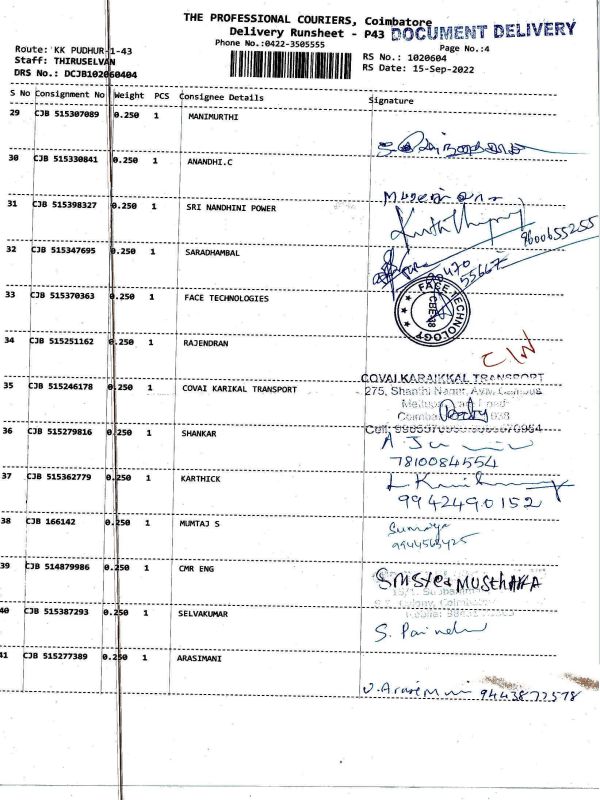 THE PROFESSIONAL COURIERS, Coimbatore
Delivery Runsheet - P43 DOCUMENT DELIVERY
Phone No.:0422-3505555
Page No.:4
Route: KK PUDHUR-1-43
RS No.: 1020604
Staff: THIRUSELVAN
RS Date: 15-Sep-2022
DRS No.: DCJB102060404
S No Consignment No Weight PCS Consignee Details Signature
29 CJB 515307089 0.250 1 MANIMURTHI
30 CJB 515330841 0.250 1 ANANDHI.C
31 CJB 515398327 0.250 1 SRI NANDHINI POWER
9600655255
32 CJB 515347695 0.250 1 SARADHAMBAL
33 CJB 515370363 0.250 1 FACE TECHNOLOGIES
FACE TECHNOLOGY
34 CJB 515251162 0.250 1 RAJENDRAN
35 CJB 515246178 0.250 1 COVAI KARIKAL TRANSPORT
COVAI KARAIKKAL TRANSPORT
275, Shanthi Nagar,
36 CJB 515279816 0.250 1 SHANKAR
7810084554
37 CJB 515362779 0.250 1 KARTHICK
9942490152
38 CJB 166142 0.250 1 MUMTAJ S
Sumaya
9944565425
39 CJB 514879986 0.250 1 CMR ENG
MUSTHAFA
40 CJB 515387293 0.250 1 SELVAKUMAR
41 CJB 515277389 0.250 1 ARASIMANI
9443872578